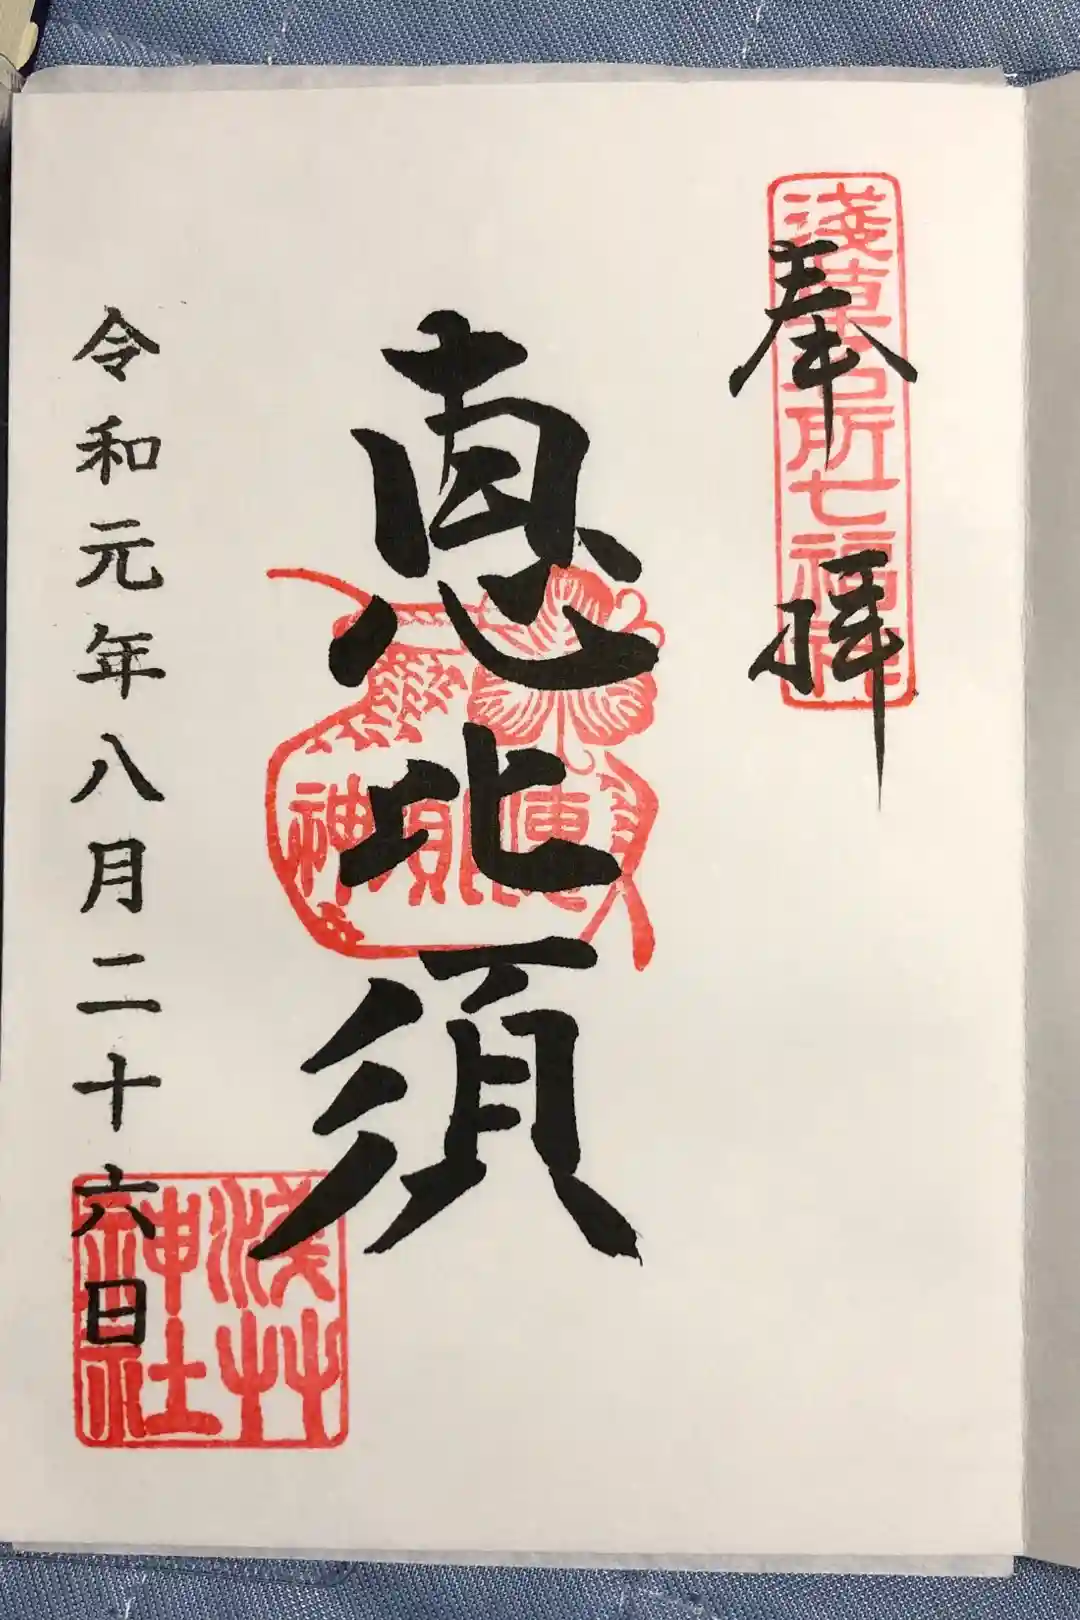 浅草名所七福神
奉拝
恵比須
恵比須神
令和元年八月二十六日
浅草神社